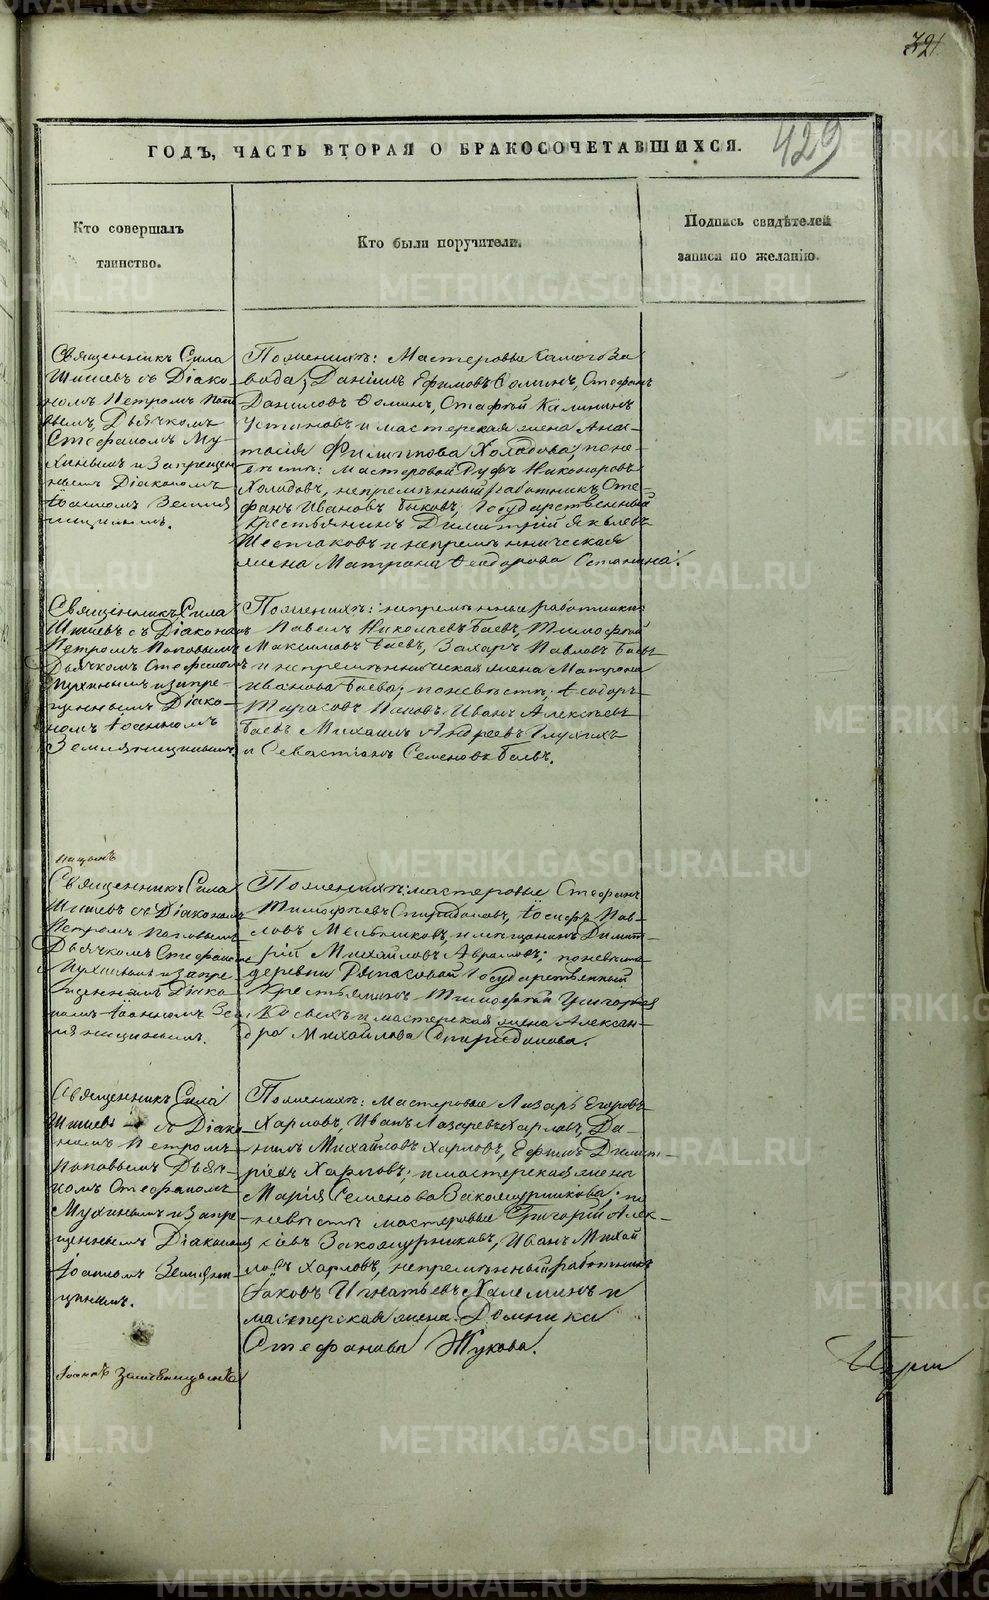 321
429
ГОДЪ, ЧАСТЬ ВТОРАЯ О БРАКОСОЧЕТАВШИХСЯ.
Кто совершалъ
таинство.
Кто были поручители.
Подпись свидѣтелей
записи по желанію.
Священникъ Сила
Шишевъ съ Діако-
номъ Петромъ Попо
вымъ, Дьячкомъ
Стефаномъ Му-
хинымъ и Запрещен
нымъ Діакономъ
Іоанномъ Земля
ницынымъ.
Поженихѣ: Мастеровые Камскаго За
вода; Даніилъ Ефимовъ Ѳоминъ, Стефанъ
Даниловъ Ѳоминъ, Стафѣй Калининъ
Устиновъ и мастерская жена Анас-
тасія Филиппова Холодова; поне-
вѣстѣ: мастеровой Руфъ Никаноровъ
Холодовъ, непремѣнный работникъ Сте-
фанъ Ивановъ Быковъ, Государственный
Крестьянинъ Димитрій Яковлевъ
Шестаковъ и непремѣнническая
жена Матрона Ѳеодорова Останина.
Священникъ Сила
Шишевъ съ Діакономъ
Петромъ Поповымъ
Дьячкомъ Стефаномъ
Мухинымъ и запре-
щеннымъ Діако-
номъ Іоанномъ
Земляницынымъ.
Поженихѣ: непремѣнные работники:
Павелъ Николаевъ Баевъ, Тимофей
Максимовъ Баевъ, Захаръ Павловъ Баевъ
и непремѣнническая жена Матрона
Иванова Баева; поневѣстѣ; Ѳеодоръ
Тарасовъ Иванъ Алексѣевъ
Баевъ Михаилъ Андреевъ Глухихъ
и Севастіанъ Семеновъ Баевъ.
ницынъ
Священникъ Сила
Шишевъ съ Діакономъ
Петромъ Поповымъ
Дьячкомъ Стефаномъ
Мухинымъ и запре-
щеннымъ Діако-
номъ Іоанномъ Зем
ляницынымъ.
Поженихѣ: мастеровые Стефанъ
Тимофѣевъ Спиридоновъ, Іосифъ Пав-
ловъ Мельниковъ, и мѣщанинъ Димит-
рій Михайловъ Аврамовъ; поневѣстѣ
деревни Государственный
Крестьянинъ Тимофей Григорьевъ
Косыхъ и мастерская жена Алексан-
дра Михайлова Спиридонова.
Священникъ Сила
Шишевъ съ Діако-
номъ Петромъ
Поповымъ Дьяч-
комъ Стефаномъ
Мухинымъ и Запре
щеннымъ Діакономъ
Іоанномъ Землян
ицынымъ.
Поженихѣ: Мастеровые Лазарь Егоровъ
Харловъ, Иванъ Лазаревъ Харловъ, Да-
ніилъ Михайловъ Харловъ, Ефимъ Димит-
ріевъ Харловъ; и мастерская жена
Марія Семенова Закожурникова; по
невѣстѣ мастеровые Григорій Алек-
сѣевъ Закожурниковъ, Иванъ Михай
ловъ Харловъ, непремѣнный работникъ
Яковъ Игнатьевъ Халеминъ и
мастерская жена Домника
Стефанова Жукова.
Іоаннъ Земляницынъ